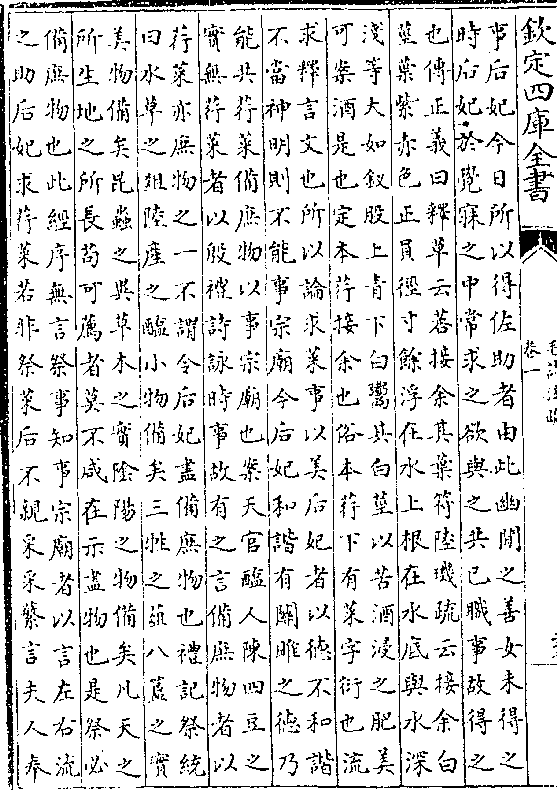 欽定四庫全書
卷一
事后妃今日所以得佐助者由此幽閒之善女未得之
時后妃於覺寐之中常求之欲與之共已職事故得之
也傳正義曰釋草云莕接余其葉符陸璣疏云接余白
莖葉紫赤色正員徑寸餘浮在水上根在水底與水深
淺等大如釵股上青下白鬻其白莖以苦酒浸之肥美
可案酒是也定本荇接余也俗本荇下有菜字衍也流
求釋言文也所以論求菜事以美后妃者以德不和諧
不當神明則不能事宗廟今后妃和諧有關雎之德乃
能共荇菜備庶物以事宗廟也案天官醢人陳四豆之
實無荇菜者以殷禮詩詠時事故有之言備庶物者以
荇菜亦庶物之一不謂今后妃盡備庶物也禮記祭統
曰水草之菹陸產之醢小物備矣三牲之俎八簋之實
美物備矣昆蟲之異草木之實陰陽之物備矣凡天之
所生地之所長苟可薦者莫不咸在示盡物也是祭必
備庶物也此經序無言祭事知事宗廟者以言左右流
之助后妃求荇菜若非祭菜后不親采采蘩言夫人奉